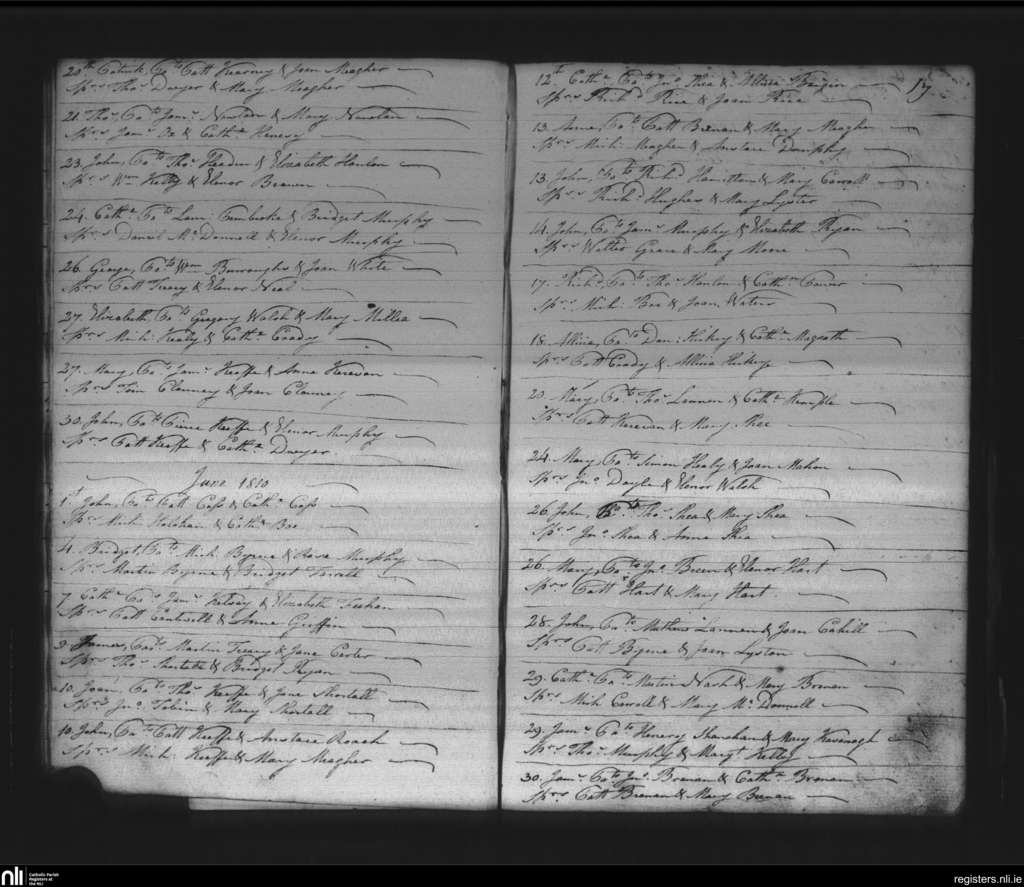 20th Catk, Co to Patt Kearney & Joan Meagher
Sprs Thos Dwyer & Mary Meagher
21. Thos, Co to Jams Newlan & Mary Nowlan
Sprs Jams & Cathn Henery
23. John, Co to Thos Headen & Elizabeth Hanlon
Sprs Wm Kelly & Elenor Brawen
24. Cathn Co to Lam: Pembroke & Bridget Murphy
Sprs Daniel Mc Donnell & Elenor Murphy
26. George, Co to Wm Burroughs & Joan White
Sprs Patt Treacy & Elenor Neal
27. Elizabeth, Co to Gregory Walsh & Mary Millea
Sprs Mich: Kealy & Cathn Coady
27. Mary, Co to Jams Keeffe & Anne Keravan
Sprs Tim Clanney & Joan Clanney
30. John, Co to Pierce Keeffe & Elenor Murphy
Sprs Patt Keeffe & Cathn Dwyer
June 1810
1st John, Co to Patt Cass & Cathn Cass
Sprs Mich Holohan & Cathn Boe
4. Bridget, Co to Mich Byrne & Rose Murphy
Sprs Martin Byrne & Bridget
7. Cathn Co to Jams Kelvey & Elizabeth Feehan
Sprs Patt Cantwell & Anne Griffin
9. James, Co to Martin Treacy & Jane Carter
Sprs Thos Shortall & Bridget Ryan
10. Joan, Co to Thos Keeffe & Jane Shortall
Sprs Jno Tobin & Mary Shortall
10. John, Co to Patt Keeffe & Anstace Roach
Sprs Mich: Keeffe & Mary Meagher
17
12th Cathn Co to Jno Shea & Allicia
Sprs Richd Rice & Joan Rice
13. Anne, Co to Patt Brenan & Mary Meagher
Sprs Mich: Meagher & Anstace Dunphy
13. John, Co to Richd Hamilton & Mary Carroll
Sprs Richd Hughes & Mary Lyster
14. John, Co to Jams Murphy & Elizabeth Ryan
Sprs Walter Grace & Mary Moore
17. Richd, Co to Thos Hanlon & Cathn Comer
Sprs Mich: Boe & Joan Waters
18. Allicia, Co to Dan: Hickey & Cathn Magrath
Sprs Patt Coady & Allicia Hickey
20. Mary, Co to Thos Lannen & Cathn Kemple
Sprs Patt Karavan & Mary Shee
24. Mary, Co to Simon Healy & Joan Mahon
Sprs Jno Doyle & Elenor Walsh
26. John, Co to Thos Shea & Mary Shea
Sprs Jno Shea & Anne Shea
26. Mary, Co to Jno Breen & Elenor Hart
Sprs Patt Hart & Mary Hart
28. John, Co to Mathew Lannen & Joan Cahill
Sprs Patt Byrne & Joan Lyster
29. Cathn Co to Martin Nash & Mary Brenan
Sprs Mich Carroll & Mary Mc Donnell
29. Jams Co to Henery Shanahan & Mary Kavanagh
Sprs Thos Murphy & Margt Kelly
30. Jams Co to Jno Brenan & Cathn Brenan
Sprs Patt Brenan & Mary Brenan
nli
Catholic Parish
Registers at
the NLI
registers.nli.ie